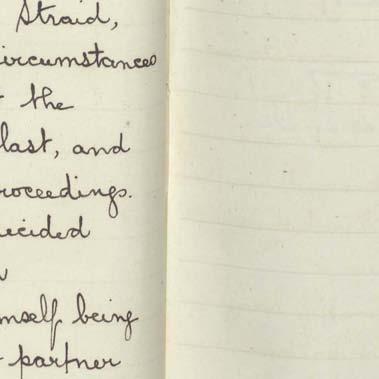 Straid,
ircumstances
the
last, and
roceedings.
ecided
mself being
partner